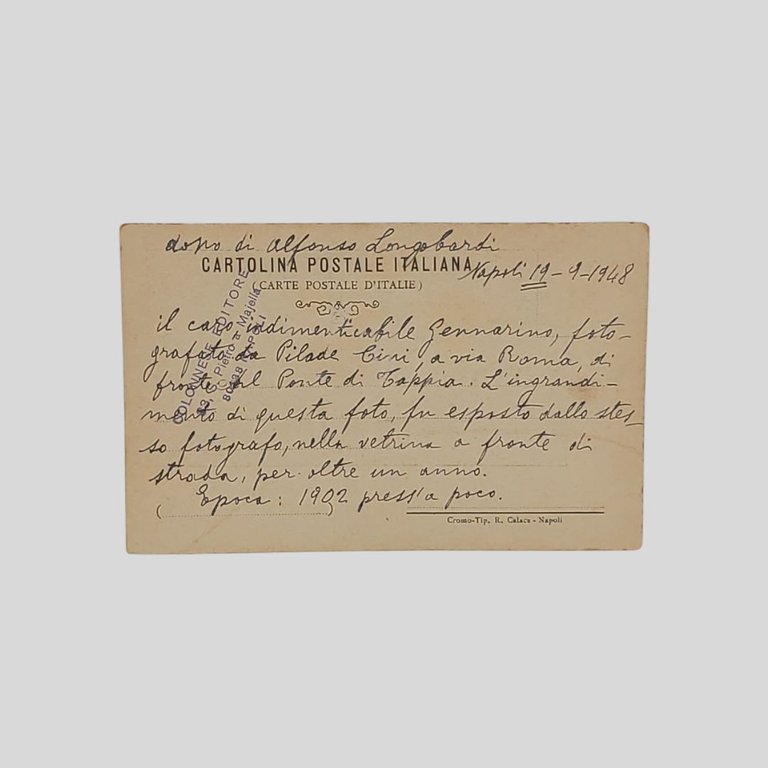 dono di Alfonso Longobardi
CARTOLINA POSTALE ITALIANA
(CARTE POSTALE D'ITALIE)
Napoli 19-9-1948
il caro indimenticabile Gennarino, foto-
grafato da Pilade Cini, a via Roma, di
fronte al Ponte di Tappia. L'ingrandi-
mento di questa foto, fu esposto dallo stes-
so fotografo, nella vetrina a fronte di
strada, per oltre un anno.
Epoca: 1902 press'a poco.
( )
Cromo-Tip. R. Calace - Napoli
COLONNESE EDITORE
S. Pietro a Majella
NAPOLI